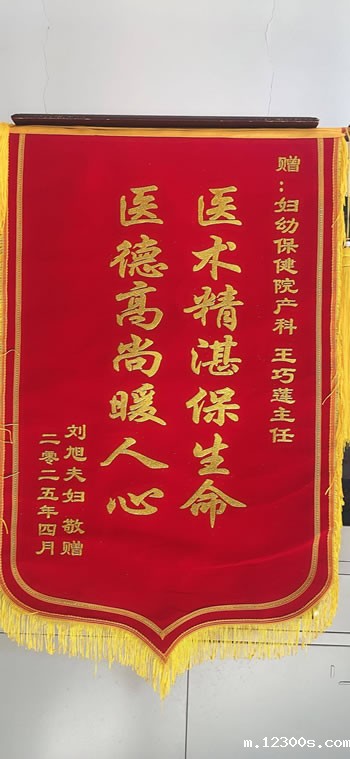 赠：妇幼保健院产科 王巧莲主任
医术精湛保生命
医德高尚暖人心
刘旭夫妇 敬赠
二零二五年四月
m.12300s.com